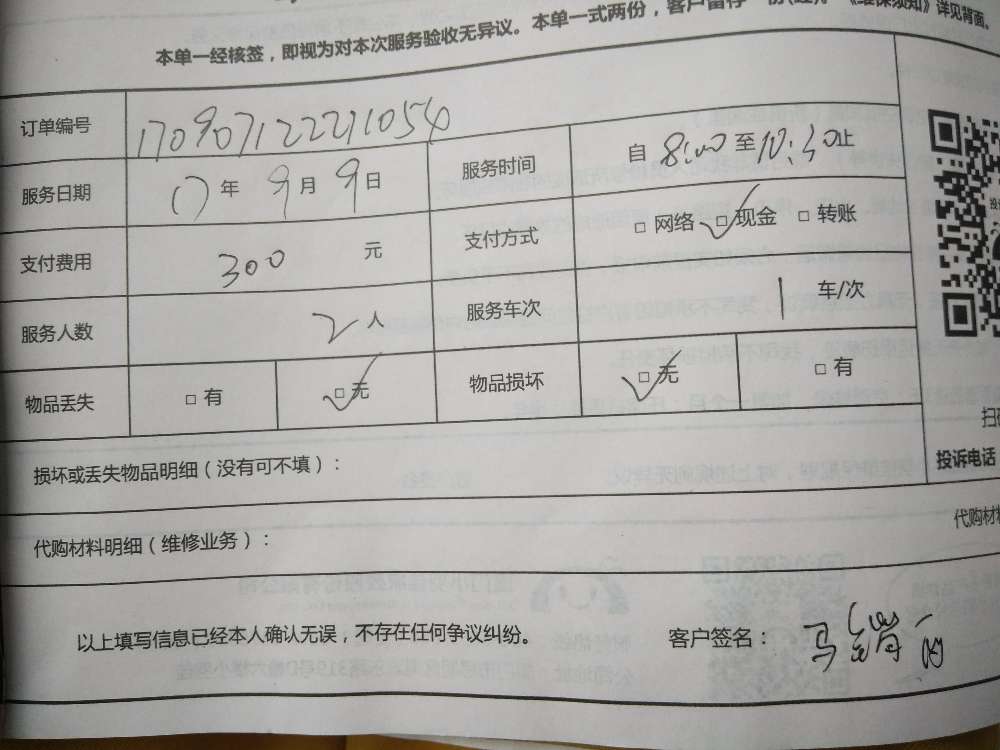 本单一经核签，即视为对本次服务验收无异议。本单一式两份，客户留存一份《维保须知》详见背面。
订单编号 170907122211054
服务日期 17年9月9日 服务时间 自8:00至10:30止
支付费用 300元 支付方式 □网络 ☑现金 □转账
服务人数 2人 服务车次 1车/次
物品丢失 □有 ☑无 物品损坏 ☑无 □有
损坏或丢失物品明细（没有可不填）：
投诉电话
代购材料明细（维修业务）：
代购材料
以上填写信息已经本人确认无误，不存在任何争议纠纷。 客户签名：